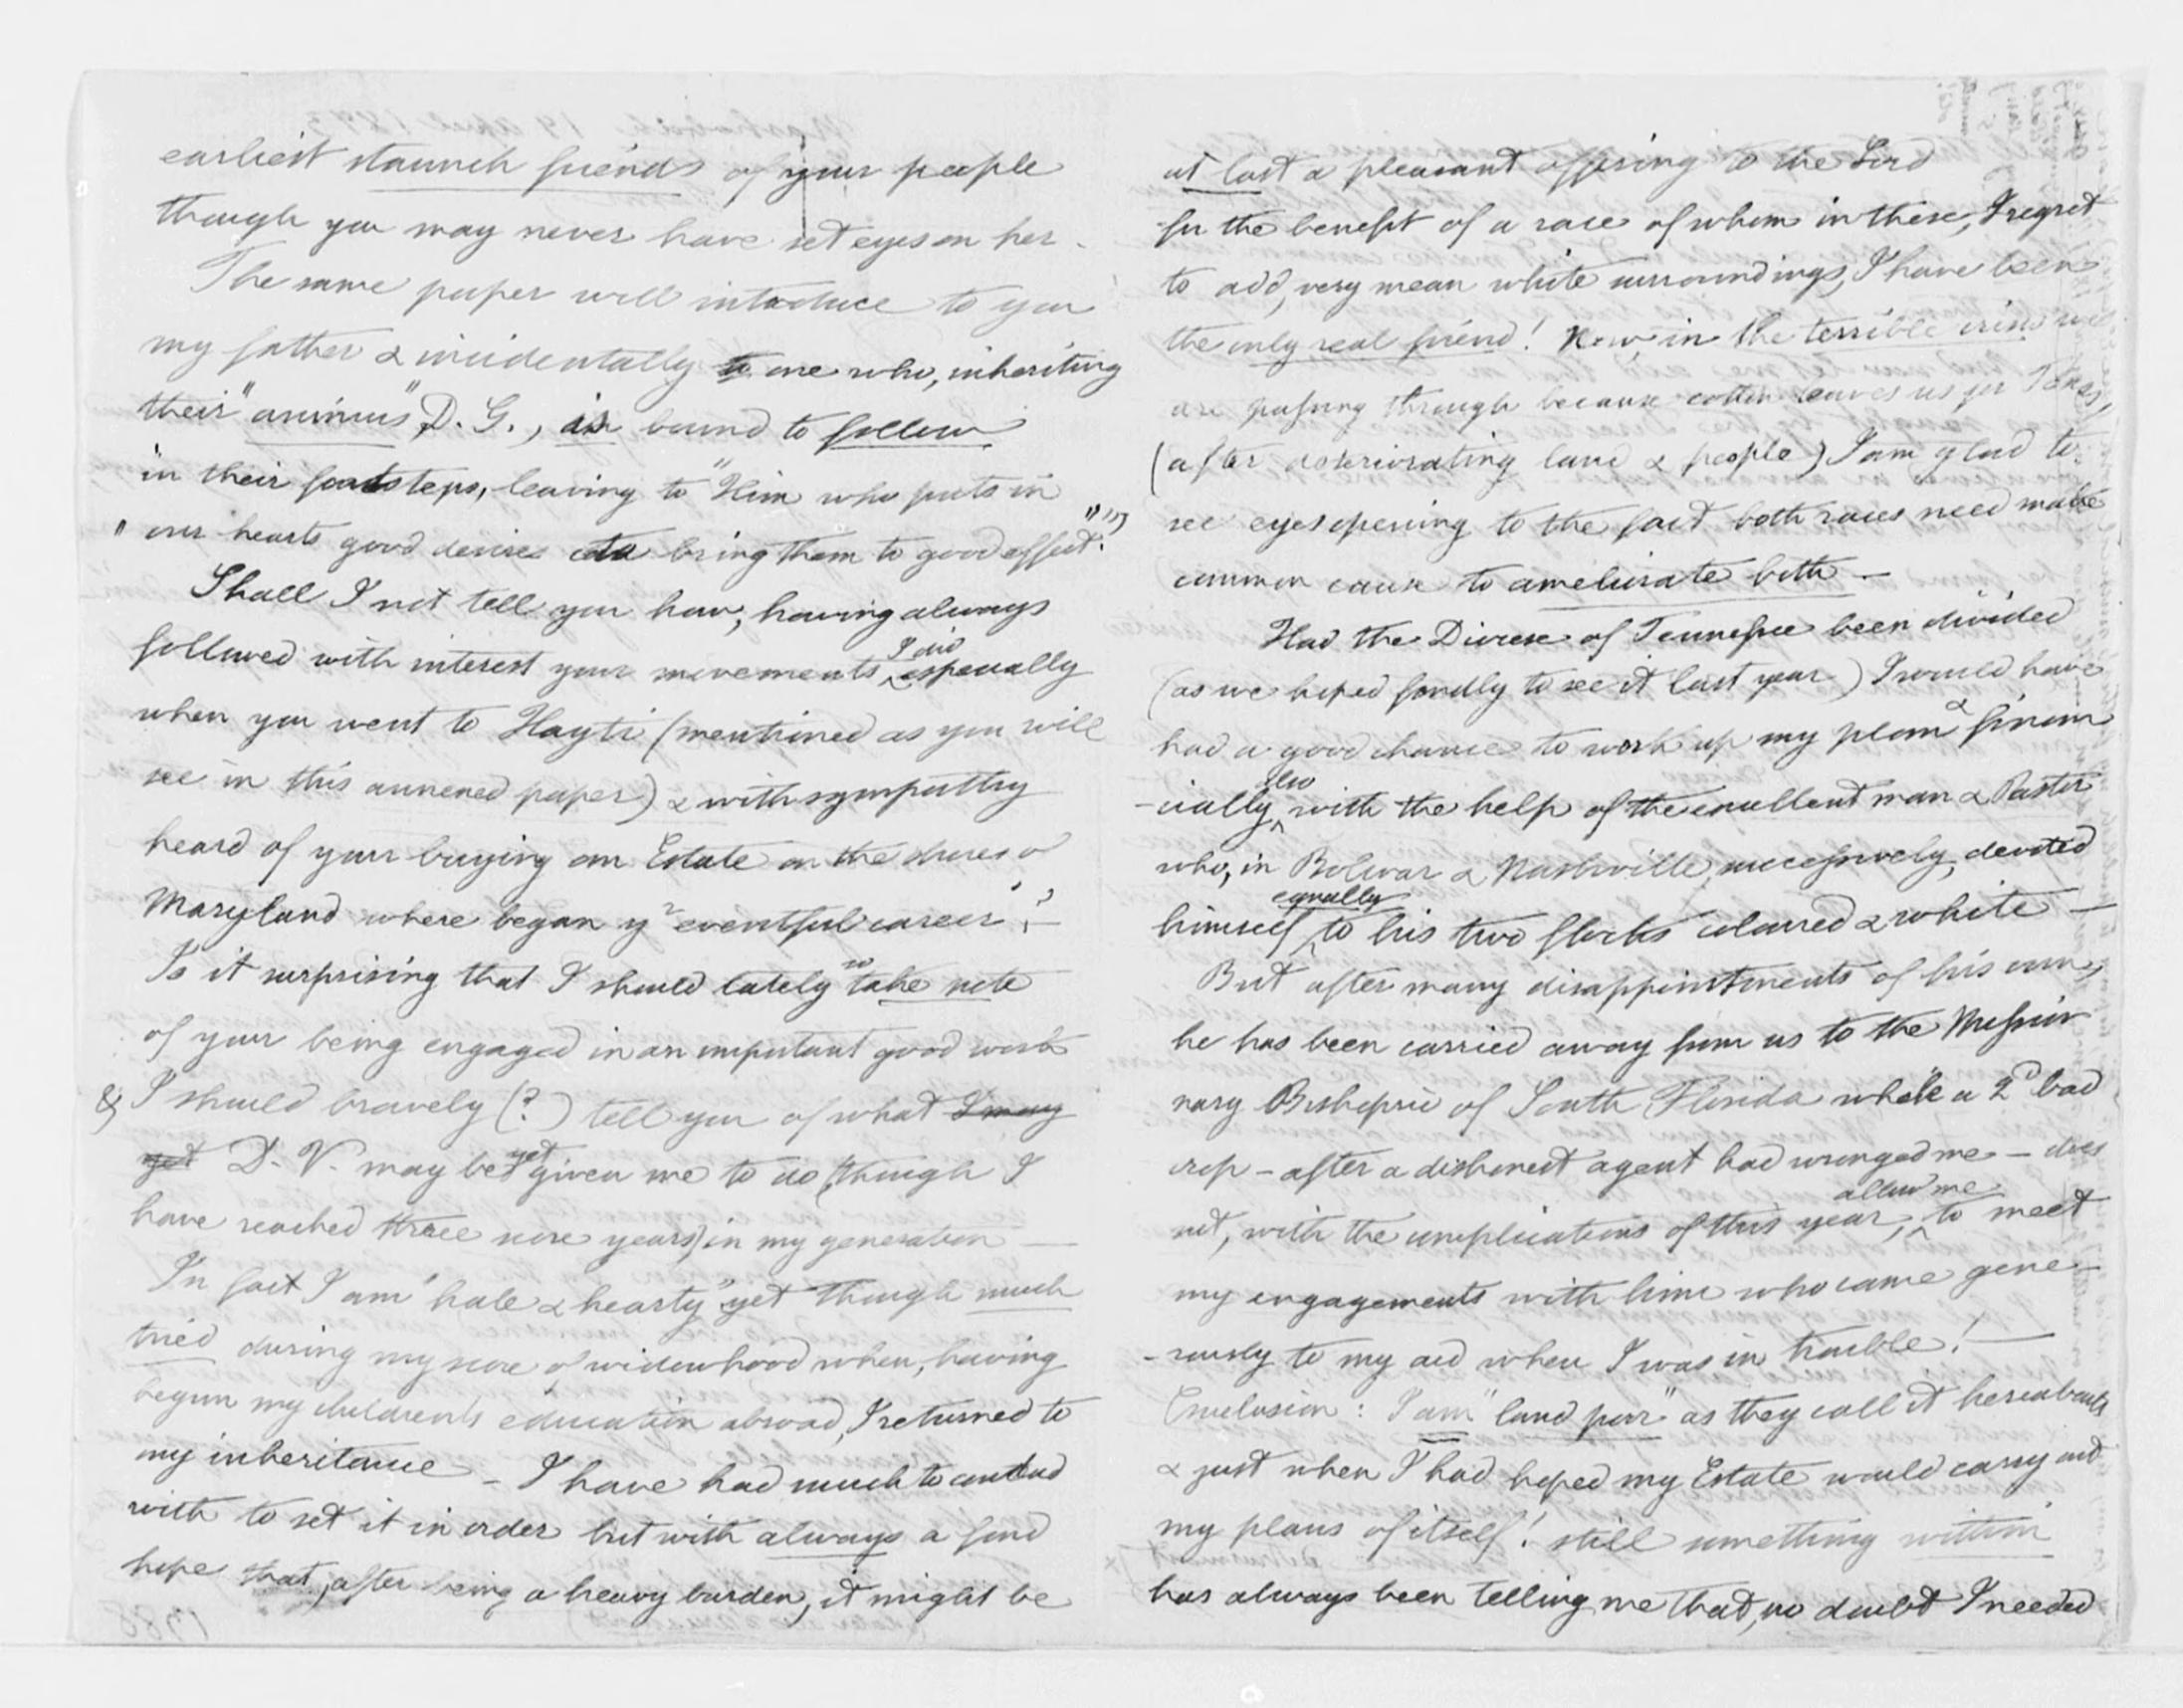 earliest staunch friends of your people
though you may never have set eyes on her.
The same paper will introduce to you
my father & incidentally to one who, inheriting
their "animus", D. G., is bound to follow
in their footsteps, leaving to "Him who puts in
" our hearts good desires to bring them to good effect."
Shall I not tell you how, having always
followed with interest your movements, I did especially
when you went to Hayti (mentioned as you will
see in this annexed paper) & with sympathy
heard of your buying an Estate on the shores of
Maryland where began yr eventful career?—
Is it surprising that I should lately so take note
of your being engaged in an important good work
& I should bravely (?) tell you of what I may
yet D. V. may be yet given me to do (though I
have reached three score years) in my generation —
In fact I am "hale & hearty" yet though much
tried during my score of widowhood when, having
begun my children's education abroad, I returned to
my inheritance – I have had much to contend
with to set it in order but with always a fond
hope that, after being a heavy burden, it might be
at last a pleasant offering to the Lord
for the benefit of a race of whom in these, I regret
to add, very mean white surroundings, I have been
the only real friend! Now, in the terrible crisis we
are passing through because cotton leaves us for Texas,
(after deteriorating land & people) I am glad to
see eyes opening to the fact both races need make
common cause to ameliorate both —
Had the Diocese of Tennessee been divided
(as we hoped fondly to see it last year) I would have
had a good chance to work up my plan & finan
-cially also with the help of the excellent man & Pastor
who, in Bolivar & Nashville, successively, devoted
himself equally to his two flocks coloured & white —
But after many disappointments of his own,
he has been carried away from us to the Missio
nary Bishopric of South Florida while a 2d bad
crop – after a dishonest agent had wronged me – does
not, with the complications of this year, allow me to meet
my engagements with him who came gene-
-rously to my aid when I was in trouble! —
Conclusion: I am "land poor" as they call it hereabouts
& just when I had hoped my Estate would carry out
my plans of itself! still something within
has always been telling me that, no doubt I needed